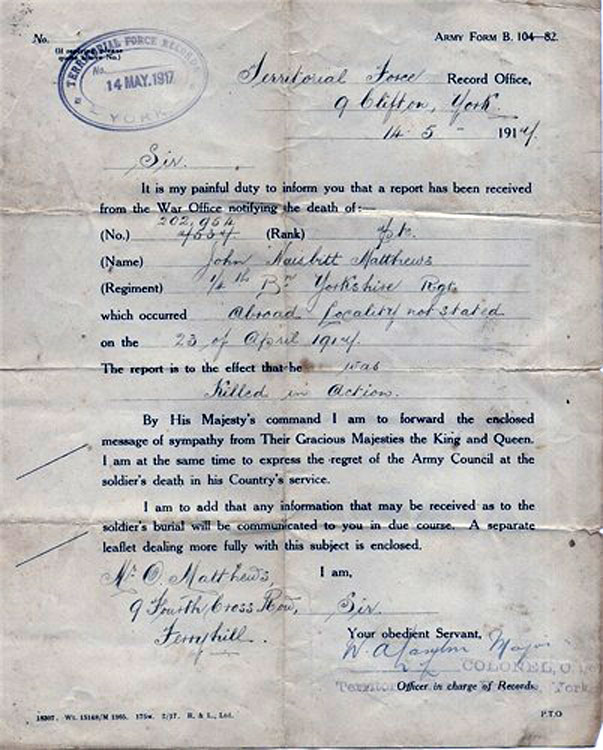 No.
(If replying please
quote above No.)
ARMY FORM B. 104—82.
TERRITORIAL FORCE RECORDS
No.
14 MAY.1917
YORK
Territorial Force Record Office,
9 Clifton, York.
14 - 5 - 1917.
Sir.
It is my painful duty to inform you that a report has been received
from the War Office notifying the death of:—
202,954
(No.) 4554 (Rank) Pte.
(Name) John Naisbitt Matthews
(Regiment) 1/4th Bn Yorkshire Regt.
which occurred Abroad Locality not stated
on the 23 of April 1917.
The report is to the effect that he was
Killed in Action.
By His Majesty's command I am to forward the enclosed
message of sympathy from Their Gracious Majesties the King and Queen.
I am at the same time to express the regret of the Army Council at the
soldier's death in his Country's service.
I am to add that any information that may be received as to the
soldier's burial will be communicated to you in due course. A separate
leaflet dealing more fully with this subject is enclosed.
Mr O. Matthews, I am,
9 Fourth Cross Row, Sir.
Ferryhill.
Your obedient Servant,
Major
COLONEL,
Officer in charge of Records.
18307. Wt. 15148/M 1365. 175M. 2/17. R. & L., Ltd.
P.T.O